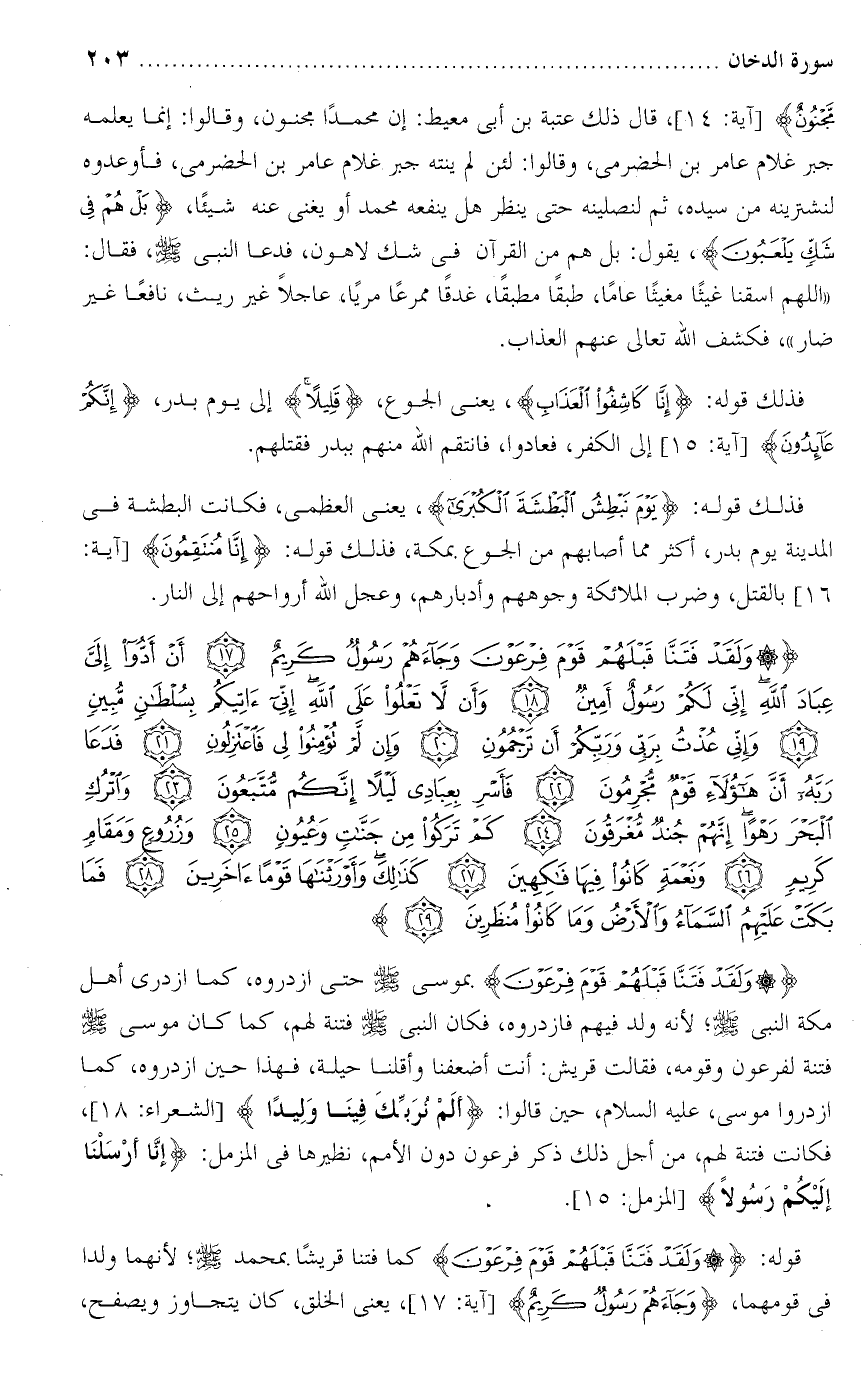 سورة الدخان ........................................................................ ٢٠٣
مَّجْنُونٌ﴾ [آية: ١٤]، قال ذلك عتبة بن أبى معيط: إن محمدًا مجنون، وقالوا: إنما يعلمه
جبر غلام عامر بن الحضرمى، وقالوا: لئن لم ينته جبر غلام عامر بن الحضرمى، فأوعدوه
لنشترينه من سيده، ثم لنصلينه حتى ينظر هل ينفعه محمد أو يغنى عنه شيئًا، ﴿بَلْ هُمْ فِى
شَكٍّ يَلْعَبُونَ﴾، يقول: بل هم من القرآن فى شك لاهون، فدعا النبى ﷺ، فقال:
«اللهم اسقنا غيثًا مغيثًا عامًا، طبقًا مطبقًا، غدقًا ممرعًا مريًا، عاجلاً غير ريث، نافعًا غير
ضار»، فكشف الله تعالى عنهم العذاب.
فذلك قوله: ﴿إِنَّا كَاشِفُوا۟ ٱلْعَذَابِ﴾، يعنى الجوع، ﴿قَلِيلًا ۚ﴾ إلى يوم بدر، ﴿إِنَّكُمْ
عَآئِدُونَ﴾ [آية: ١٥] إلى الكفر، فعادوا، فانتقم الله منهم ببدر فقتلهم.
فذلك قوله: ﴿يَوْمَ نَبْطِشُ ٱلْبَطْشَةَ ٱلْكُبْرَىٰٓ﴾، يعنى العظمى، فكانت البطشة فى
المدينة يوم بدر، أكثر مما أصابهم من الجوع بمكة، فذلك قوله: ﴿إِنَّا مُنتَقِمُونَ﴾ [آية:
١٦] بالقتل، وضرب الملائكة وجوههم وأدبارهم، وعجل الله أرواحهم إلى النار.
﴿۞ وَلَقَدْ فَتَنَّا قَبْلَهُمْ قَوْمَ فِرْعَوْنَ وَجَآءَهُمْ رَسُولٌ كَرِيمٌ ﴿١٧﴾ أَنْ أَدُّوٓا۟ إِلَىَّ
عِبَادَ ٱللَّهِ ۖ إِنِّى لَكُمْ رَسُولٌ أَمِينٌ ﴿١٨﴾ وَأَن لَّا تَعْلُوا۟ عَلَى ٱللَّهِ ۖ إِنِّىٓ ءَاتِيكُم بِسُلْطَٰنٍ مُّبِينٍ
﴿١٩﴾ وَإِنِّى عُذْتُ بِرَبِّى وَرَبِّكُمْ أَن تَرْجُمُونِ ﴿٢٠﴾ وَإِن لَّمْ تُؤْمِنُوا۟ لِى فَٱعْتَزِلُونِ ﴿٢١﴾ فَدَعَا
رَبَّهُۥٓ أَنَّ هَٰٓؤُلَآءِ قَوْمٌ مُّجْرِمُونَ ﴿٢٢﴾ فَأَسْرِ بِعِبَادِى لَيْلًا إِنَّكُم مُّتَّبَعُونَ ﴿٢٣﴾ وَٱتْرُكِ
ٱلْبَحْرَ رَهْوًا ۖ إِنَّهُمْ جُندٌ مُّغْرَقُونَ ﴿٢٤﴾ كَمْ تَرَكُوا۟ مِن جَنَّٰتٍ وَعُيُونٍ ﴿٢٥﴾ وَزُرُوعٍ وَمَقَامٍ
كَرِيمٍ ﴿٢٦﴾ وَنَعْمَةٍ كَانُوا۟ فِيهَا فَٰكِهِينَ ﴿٢٧﴾ كَذَٰلِكَ ۖ وَأَوْرَثْنَٰهَا قَوْمًا ءَاخَرِينَ ﴿٢٨﴾ فَمَا
بَكَتْ عَلَيْهِمُ ٱلسَّمَآءُ وَٱلْأَرْضُ وَمَا كَانُوا۟ مُنظَرِينَ ﴿٢٩﴾ ﴾
﴿۞ وَلَقَدْ فَتَنَّا قَبْلَهُمْ قَوْمَ فِرْعَوْنَ﴾ بموسى ﷺ حتى ازدروه، كما ازدرى أهل
مكة النبى ﷺ؛ لأنه ولد فيهم فازدروه، فكان النبى ﷺ فتنة لهم، كما كان موسى ﷺ
فتنة لفرعون وقومه، فقالت قريش: أنت أضعفنا وأقلنا حيلة، فهذا حين ازدروه، كما
ازدروا موسى، عليه السلام، حين قالوا: ﴿أَلَمْ نُرَبِّكَ فِينَا وَلِيدًا﴾ [الشعراء: ١٨]،
فكانت فتنة لهم، من أجل ذلك ذكر فرعون دون الأمم، نظيرها فى المزمل: ﴿إِنَّا أَرْسَلْنَا
إِلَيْكُمْ رَسُولاً﴾ [المزمل: ١٥].
قوله: ﴿۞ وَلَقَدْ فَتَنَّا قَبْلَهُمْ قَوْمَ فِرْعَوْنَ﴾ كما فتنا قريشًا بمحمد ﷺ؛ لأنهما ولدا
فى قومهما، ﴿وَجَآءَهُمْ رَسُولٌ كَرِيمٌ﴾ [آية: ١٧]، يعنى الخلق، كان يتجاوز ويصفح،